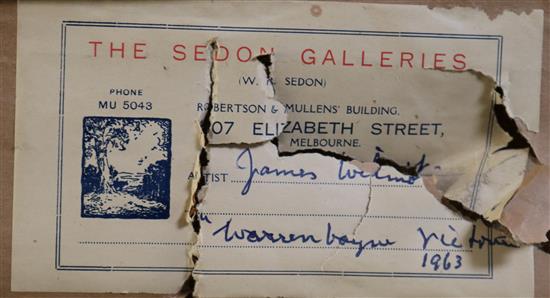 THE SEDON GALLERIES
(W. R. SEDON)
PHONE
MU 5043
ROBERTSON & MULLENS' BUILDING.
07 ELIZABETH STREET,
MELBOURNE.
ARTIST James
Warrenbayne Victoria
1963